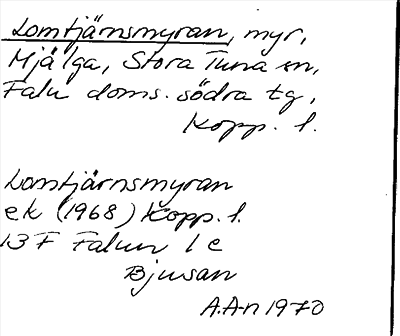 Lomtjärnsmyran, myr,
Mjälga, Stora Tuna sn,
Falu doms. södra tg,
Kopp. l.
Lomtjärnsmyran
ek (1968) Kopp. l.
13 F Falun 1 c
Bjusan
A.A-n 1970